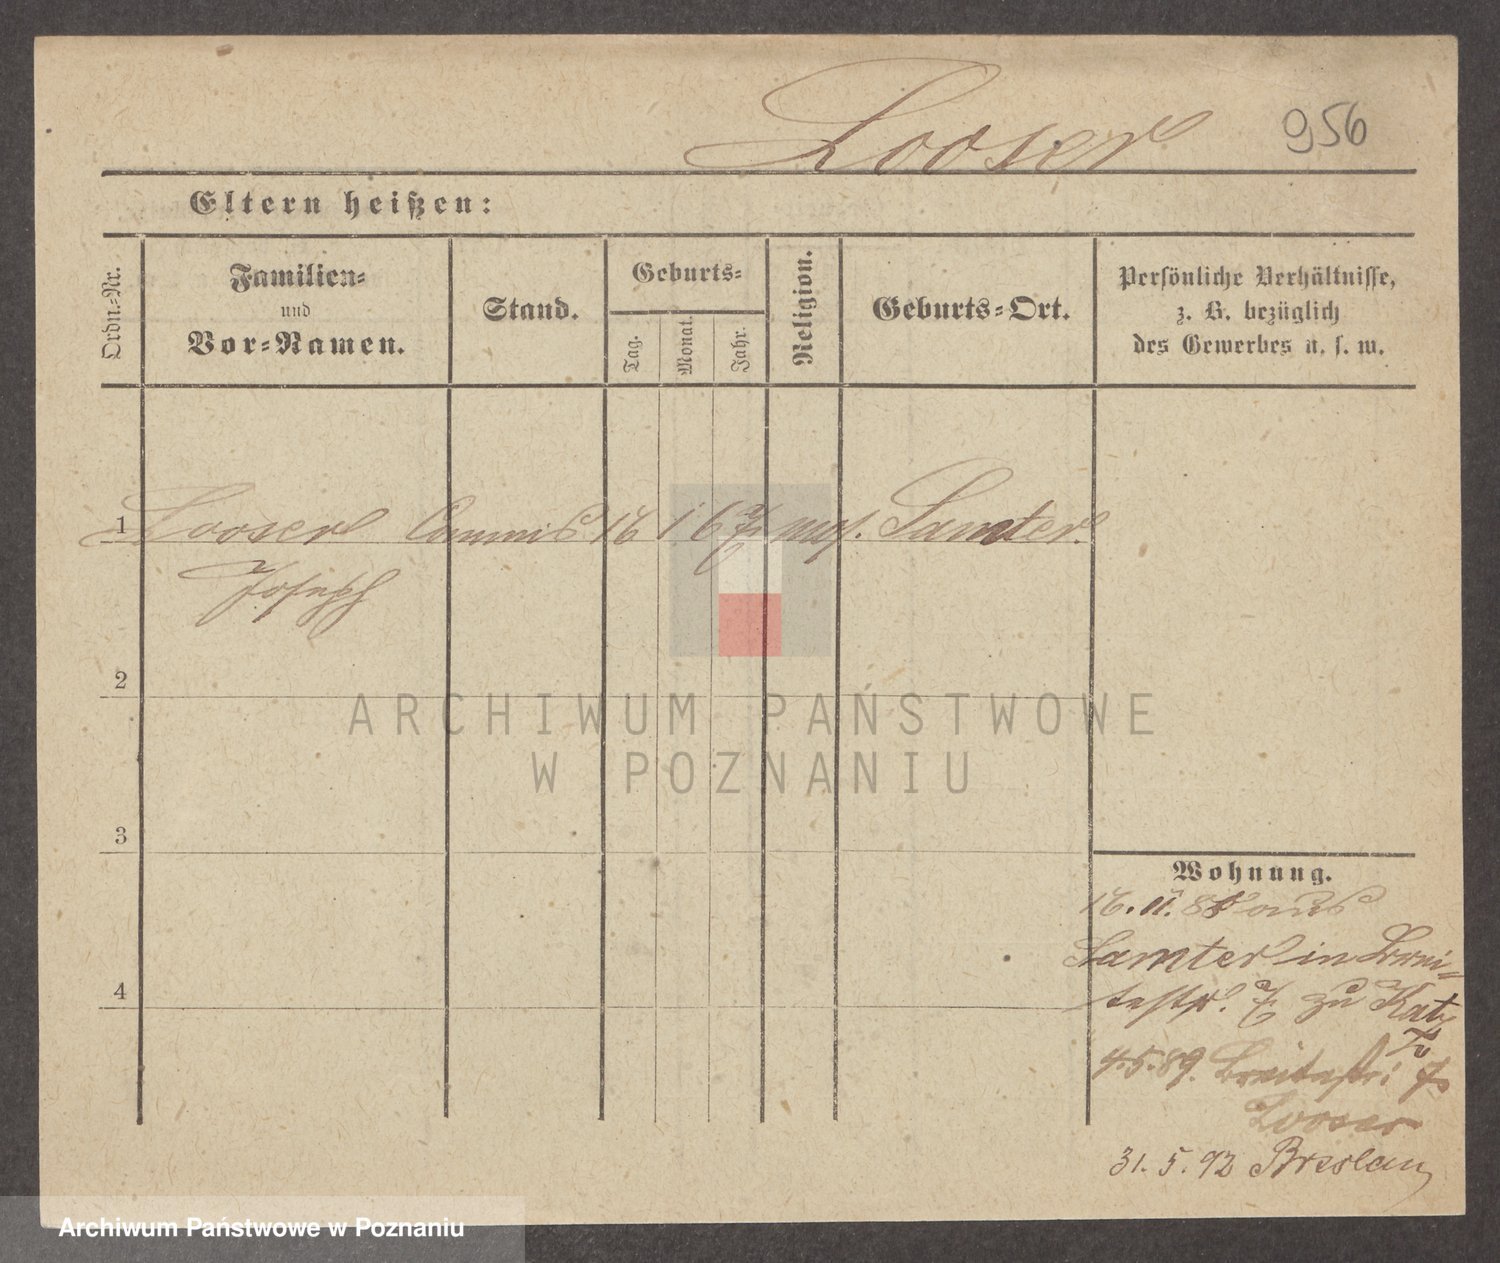 Looser 956
Eltern heißen:
Ordn.-Nr.
Familien-
und
Vor-Namen.
Stand.
Geburts-
Tag.
Monat.
Jahr.
Religion.
Geburts-Ort.
Persönliche Verhältnisse,
z. B. bezüglich
des Gewerbes u. s. w.
1 Looser Commis 16 1 67 mos. Samter.
Joseph
2
3
4
Wohnung.
16. 11. 88 aus
Samter in Brei-
testr. 7 zu Katz
4.5.89. Breitestr. 7
Looser
31. 5. 92 Breslau
ARCHIWUM PAŃSTWOWE
W POZNANIU
Archiwum Państwowe w Poznaniu